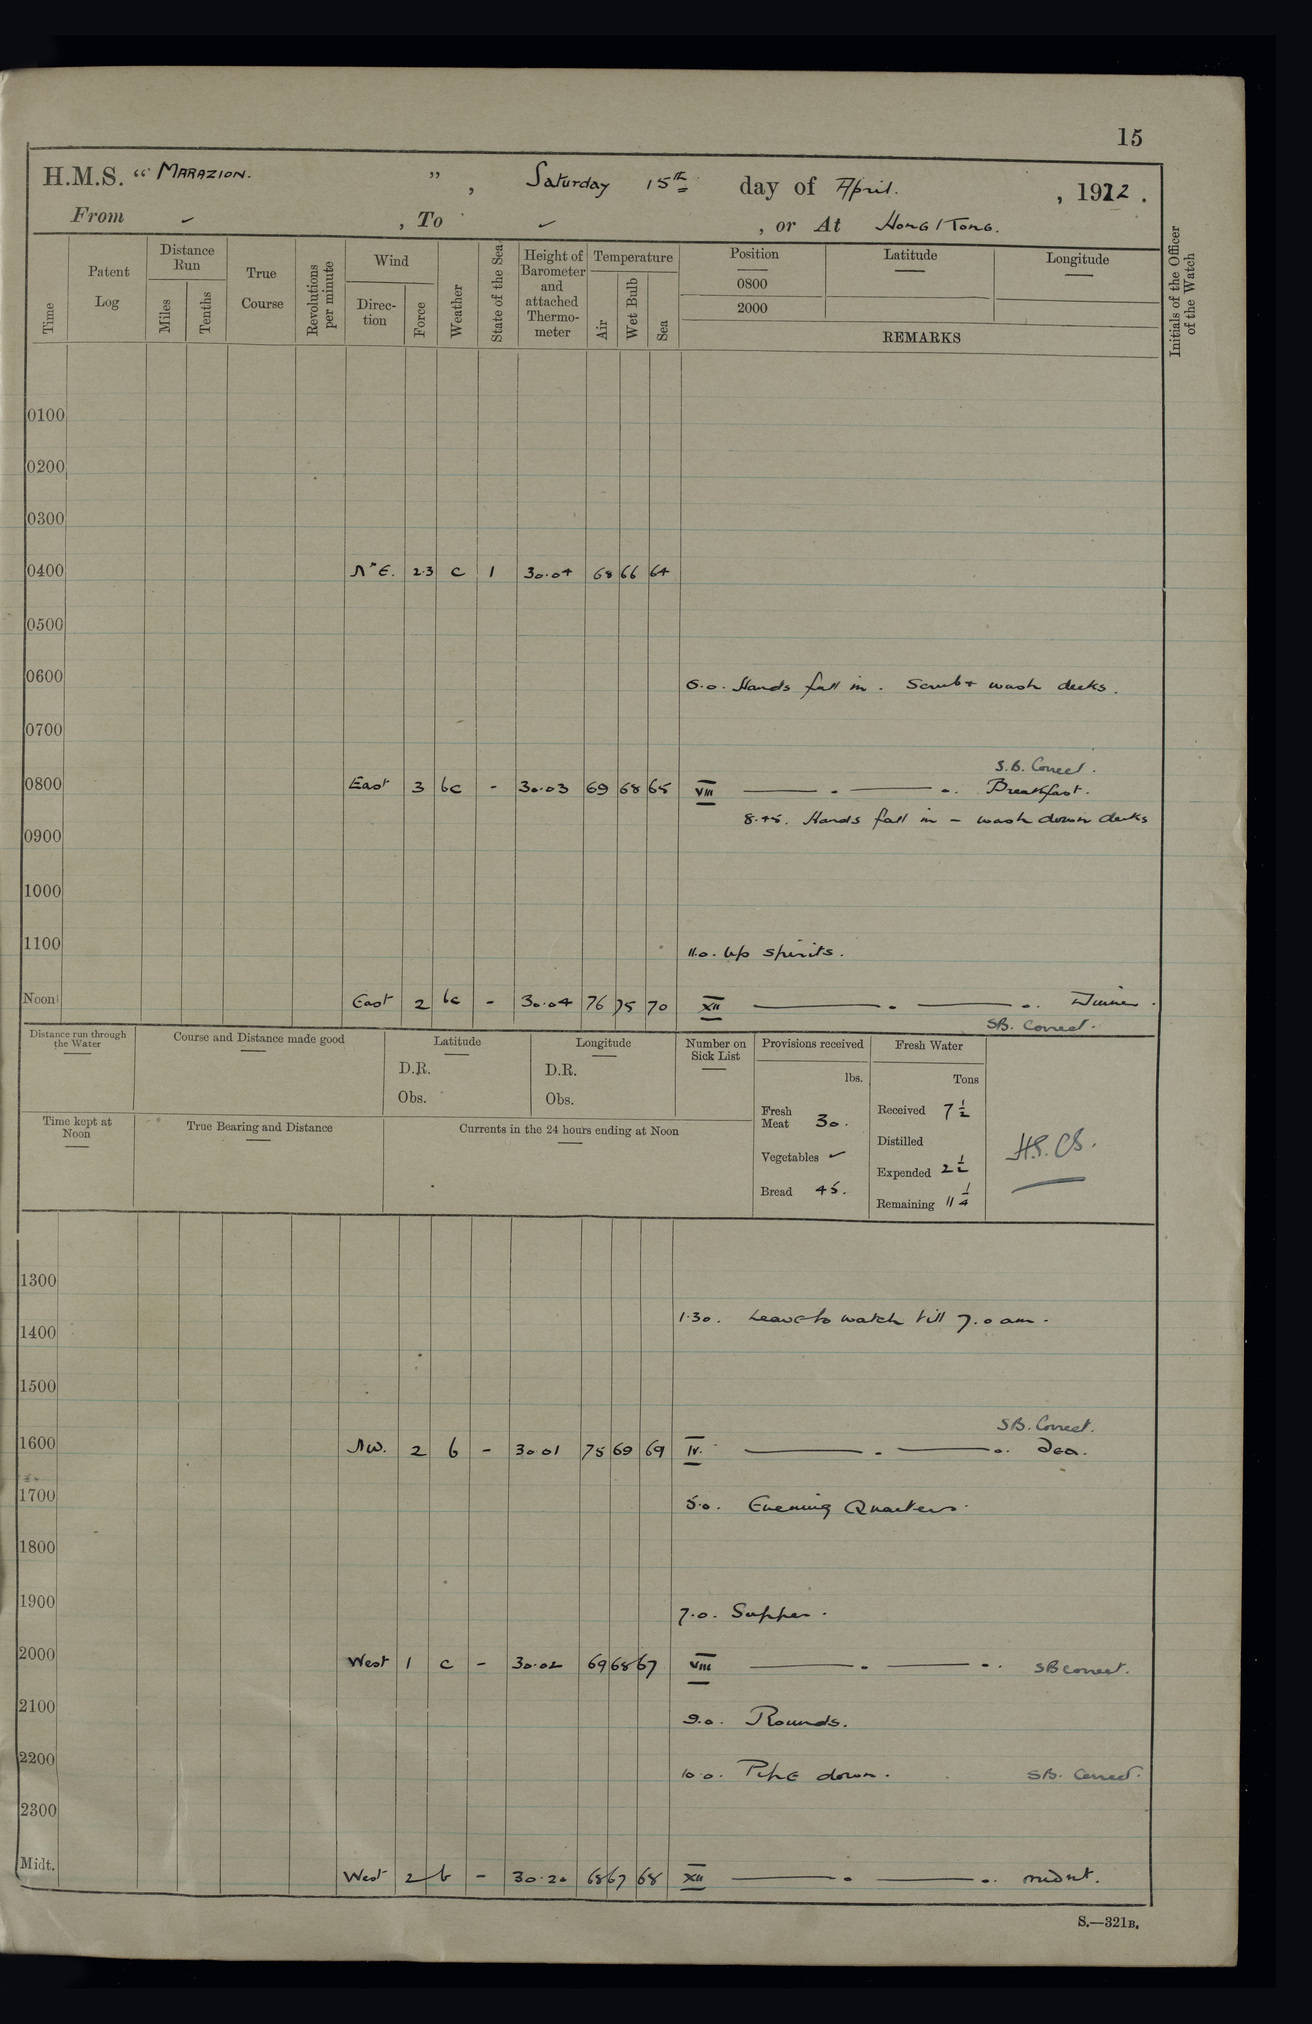 15
H.M.S. “ MARAZION. ” , Saturday 15th day of April. , 1922 .
From ✓ , To ✓ , or At HONG KONG.
Time
Patent Log
Distance Run
Miles
Tenths
True Course
Revolutions per minute
Wind
Direction
Force
Weather
State of the Sea
Height of Barometer and attached Thermometer
Temperature
Air
Wet Bulb
Sea
Position
0800
2000
Latitude
Longitude
REMARKS
Initials of the Officer of the Watch
0100
0200
0300
0400 N'E. 2.3 c 1 30.04 68 66 64
0500
0600 6.0. Hands fall in. Scrub & wash decks.
0700
S.B. Correct.
0800 East 3 bc - 30.03 69 68 65 VIII Breakfast.
8.45. Hands fall in - wash down decks
0900
1000
1100 11.0. Up spirits.
Noon East 2 bc - 30.04 76 75 70 XII Dinner.
SB. Correct.
Distance run through the Water
Course and Distance made good
Latitude
D.R.
Obs.
Longitude
D.R.
Obs.
Number on Sick List
Provisions received
lbs.
Fresh Meat 30.
Vegetables ✓
Bread 45.
Fresh Water
Tons
Received 7 1/2
Distilled
Expended 2 1/2
Remaining 11 1/4
Time kept at Noon
True Bearing and Distance
Currents in the 24 hours ending at Noon
1300
1.30. Leave to watch till 7.0 am.
1400
1500
SB. Correct.
1600 NW. 2 b - 30.01 75 69 69 IV. Tea.
1700 5.0. Evening Quarters.
1800
1900 7.0. Supper.
2000 West 1 c - 30.02 69 68 67 VIII SB correct.
2100 9.0. Rounds.
2200 10.0. Pipe down. SB. Correct.
2300
Midt. West 2 b - 30.20 68 67 68 XII midnt.
S.—321B.